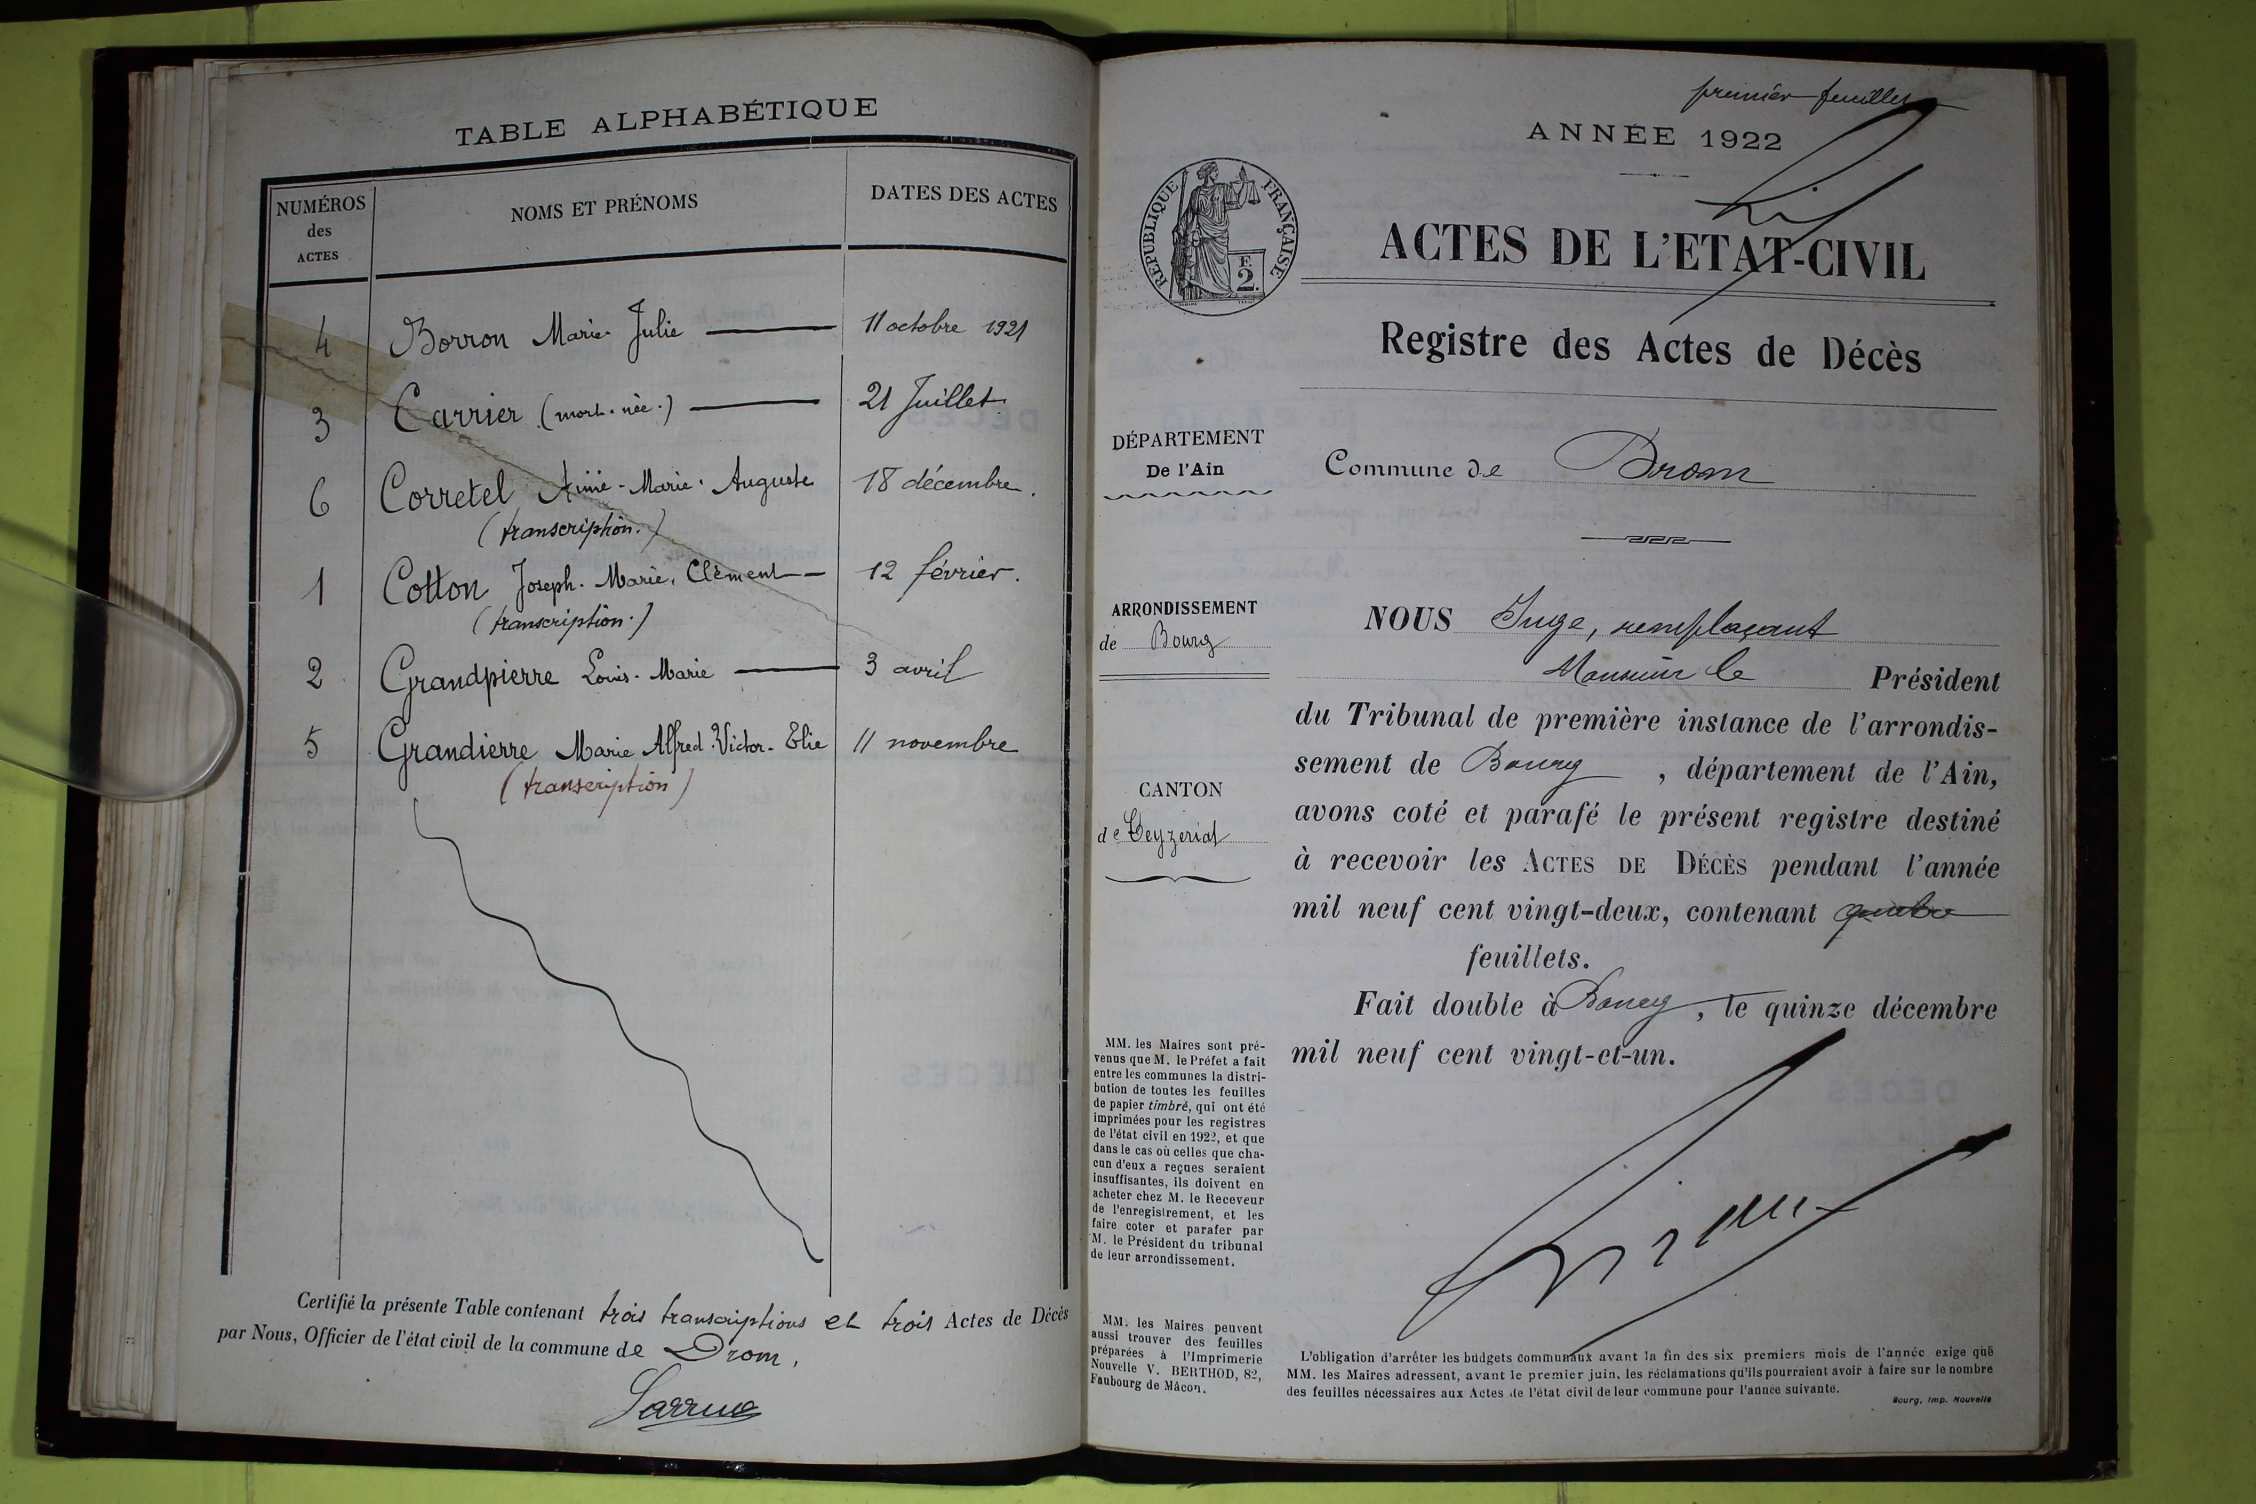 TABLE ALPHABÉTIQUE
NUMÉROS
des
ACTES
NOMS ET PRÉNOMS
DATES DES ACTES
4 Borron Marie Julie 11 octobre 1921
3 Carrier (mort-née.) 21 Juillet
6 Corretel Aimé-Marie-Auguste 18 décembre.
(transcription.)
1 Cotton Joseph-Marie, Clément 12 février.
(transcription.)
2 Grandpierre Louis-Marie 3 avril
5 Grandierre Marie Alfred Victor-Elie 11 novembre
(transcription)
Certifié la présente Table contenant trois transcriptions et trois Actes de Décès
par Nous, Officier de l'état civil de la commune de Drom.
premier feuillet
ANNÉE 1922
RÉPUBLIQUE FRANÇAISE
F.
2.
ACTES DE L'ETAT-CIVIL
Registre des Actes de Décès
DÉPARTEMENT
De l'Ain
Commune de Drom
ARRONDISSEMENT
de Bourg
CANTON
de Ceyzeriat
NOUS Juge, remplaçant
Monsieur le Président
du Tribunal de première instance de l'arrondis-
sement de Bourg, département de l'Ain,
avons coté et parafé le présent registre destiné
à recevoir les ACTES DE DÉCÈS pendant l'année
mil neuf cent vingt-deux, contenant quatre
feuillets.
Fait double à Bourg, le quinze décembre
mil neuf cent vingt-et-un.
MM. les Maires sont pré-
venus que M. le Préfet a fait
entre les communes la distri-
bution de toutes les feuilles
de papier timbré, qui ont été
imprimées pour les registres
de l'état civil en 1922, et que
dans le cas où celles que cha-
cun d'eux a reçues seraient
insuffisantes, ils doivent en
acheter chez M. le Receveur
de l'enregistrement, et les
faire coter et parafer par
M. le Président du tribunal
de leur arrondissement.
MM. les Maires peuvent
aussi trouver des feuilles
préparées à l'Imprimerie
Nouvelle V. BERTHOD, 82,
Faubourg de Mâcon.
L'obligation d'arrêter les budgets communaux avant la fin des six premiers mois de l'année exige que
MM. les Maires adressent, avant le premier juin, les réclamations qu'ils pourraient avoir à faire sur le nombre
des feuilles nécessaires aux Actes de l'état civil de leur commune pour l'année suivante.
Bourg, Imp. Nouvelle